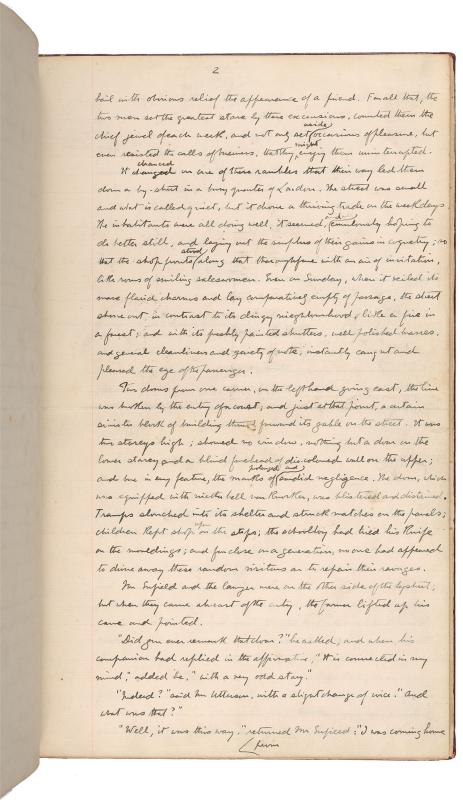 2
hail with obvious relief the appearance of a friend. For all that, the
two men set the greatest store by these excursions, counted them the
chief jewel of each week, and not only set aside occasions of pleasure, but
even resisted the calls of business, that they might enjoy them uninterrupted.
It chanced on one of these rambles that their way led them
down a by-street in a busy quarter of London. The street was small
and what is called quiet, but it drove a thriving trade on the weekdays.
The inhabitants were all doing well, it seemed, and all emulously hoping to
do better still, and laying out the surplus of their gains in coquetry; so
that the shop fronts stood along that thoroughfare with an air of invitation,
like rows of smiling saleswomen. Even on Sunday, when it veiled its
more florid charms and lay comparatively empty of passage, the street
shone out in contrast to its dingy neighbourhood, like a fire in
a forest; and with its freshly painted shutters, well polished brasses,
and general cleanliness and gaiety of note, instantly caught and
pleased the eye of the passenger.
Two doors from one corner, on the left hand going east, the line
was broken by the entry of a court; and just at that point, a certain
sinister block of building thrust forward its gable on the street. It was
two storeys high; showed no window, nothing but a door on the
lower storey and a blind forehead of discoloured wall on the upper;
and bore in every feature, the marks of prolonged and sordid negligence. The door, which
was equipped with neither bell nor knocker, was blistered and distained.
Tramps slouched into the shelter and struck matches on the panels;
children kept shop upon the steps; the schoolboy had tried his knife
on the mouldings; and for close on a generation, no one had appeared
to drive away these random visitors or to repair their ravages.
Mr Enfield and the lawyer were on the other side of the bystreet;
but when they came abreast of the entry, the former lifted up his
cane and pointed.
"Did you ever remark that door?" he asked; and when his
companion had replied in the affirmative, "It is connected in my
mind," added he, "with a very odd story."
"Indeed?" said Mr Utterson, with a slight change of voice, "and
what was that?"
"Well, it was this way," returned Mr Enfield: "I was coming home
from